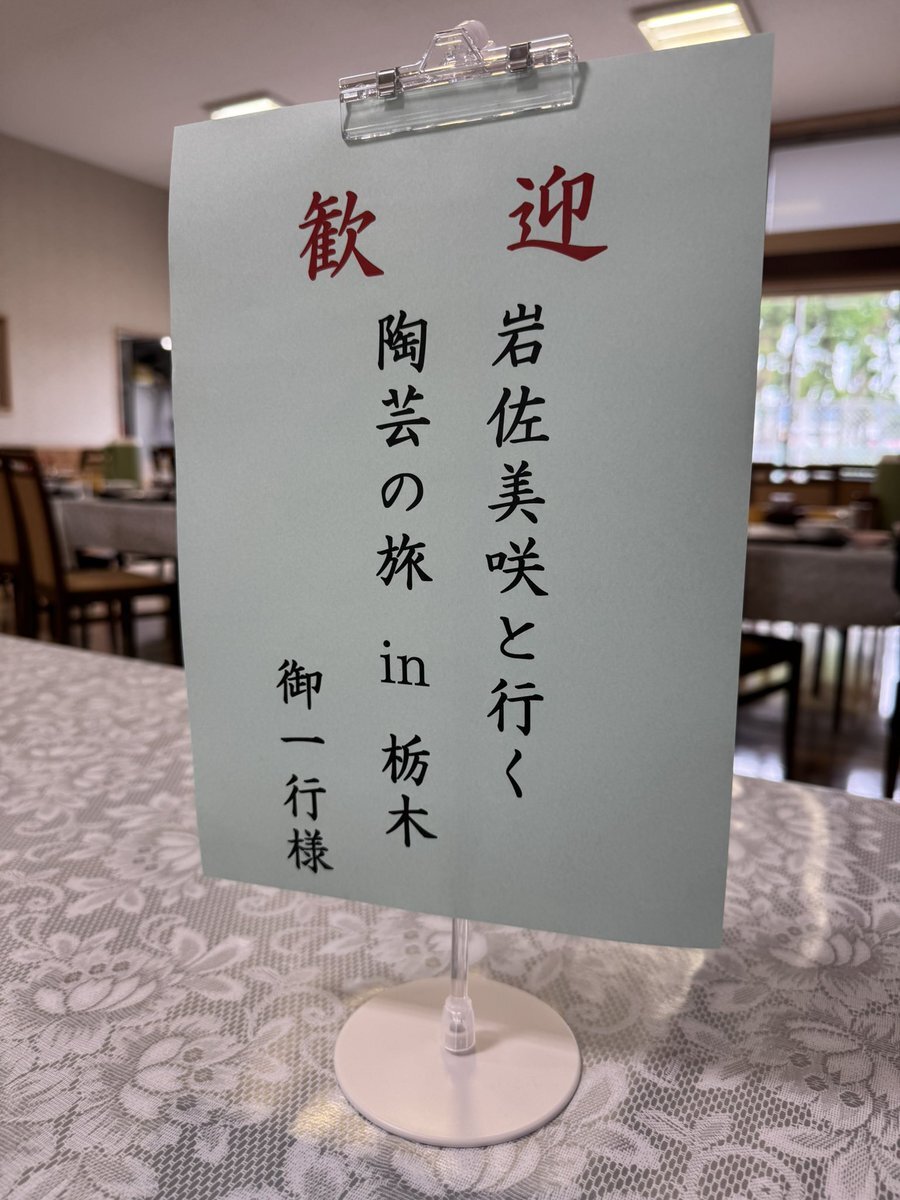 歓迎
岩佐美咲と行く
陶芸の旅 in 栃木
御一行様